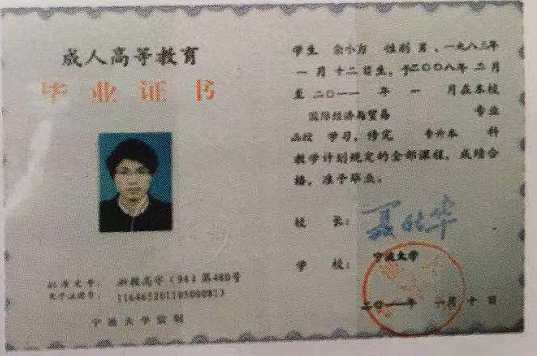 成人高等教育
毕业证书
批准文号: 浙教高字(94)第480号
宁波大学监制
学生 余小方 性别 男,一九八三年
一月 十二日生,于二〇〇八年 二月
至 二〇一一 年 一 月在本校
国际经济与贸易 专业
函授 学习,修完 专升本 科
教学计划规定的全部课程,成绩合
格,准予毕业。
校 长:
学 校: 宁波大学
二〇一一年 一月 十 日